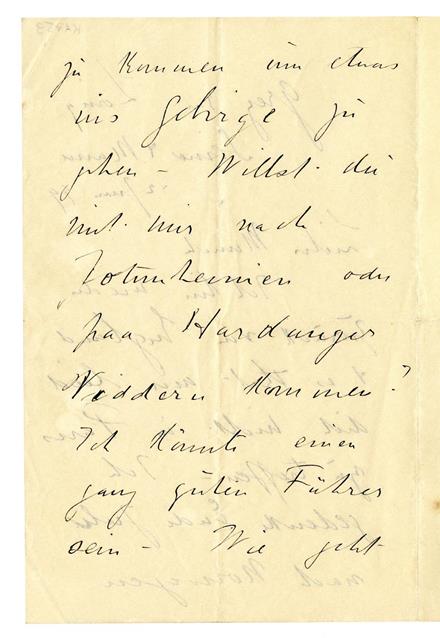 zu kommen um etwas
ins Gebirge zu
gehen – Willst du
mit mir nach
Jotunheimen oder
paa Hardanger
Viddern kommen?
Ich könnte einen
ganz guten Führer
sein – Wie geht